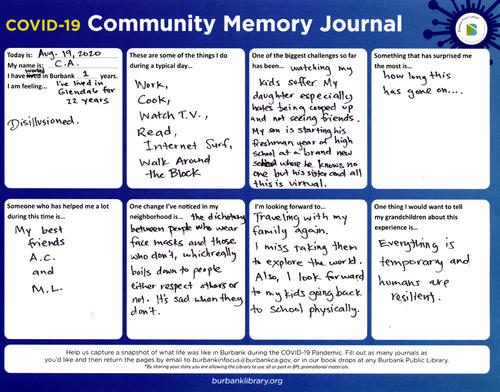 COVID-19 Community Memory Journal
Today is: Aug. 19, 2020
My name is: C.A.
working
I have lived in Burbank 1 years.
I am feeling... I've lived in
Glendale for
22 years
Disillusioned.
These are some of the things I do
during a typical day...
Work,
Cook,
Watch T.V.,
Read,
Internet Surf,
Walk Around
the Block
One of the biggest challenges so far
has been... watching my
kids suffer. My
daughter especially
hates being cooped up
and not seeing friends.
My son is starting his
freshman year of high
school at a brand new
school where he knows no
one but his sister and all
this is virtual.
Something that has surprised me
the most is...
how long this
has gone on....
Someone who has helped me a lot
during this time is...
My best
friends
A.C.
and
M.L.
One change I've noticed in my
neighborhood is... the dichotomy
between people who wear
face masks and those
who don't, which really
boils down to people
either respect others or
not. It's sad when they
don't.
I'm looking forward to...
Traveling with my
family again.
I miss taking them
to explore the world.
Also, I look forward
to my kids going back
to school physically.
One thing I would want to tell
my grandchildren about this
experience is...
Everything is
temporary and
humans are
resilient.
Help us capture a snapshot of what life was like in Burbank during the COVID-19 Pandemic. Fill out as many journals as
you'd like and then return the pages by email to burbankinfocus@burbankca.gov, or in our book drops at any Burbank Public Library.
*By sharing your story you are allowing the Library to use all or part in BPL promotional materials.
burbanklibrary.org